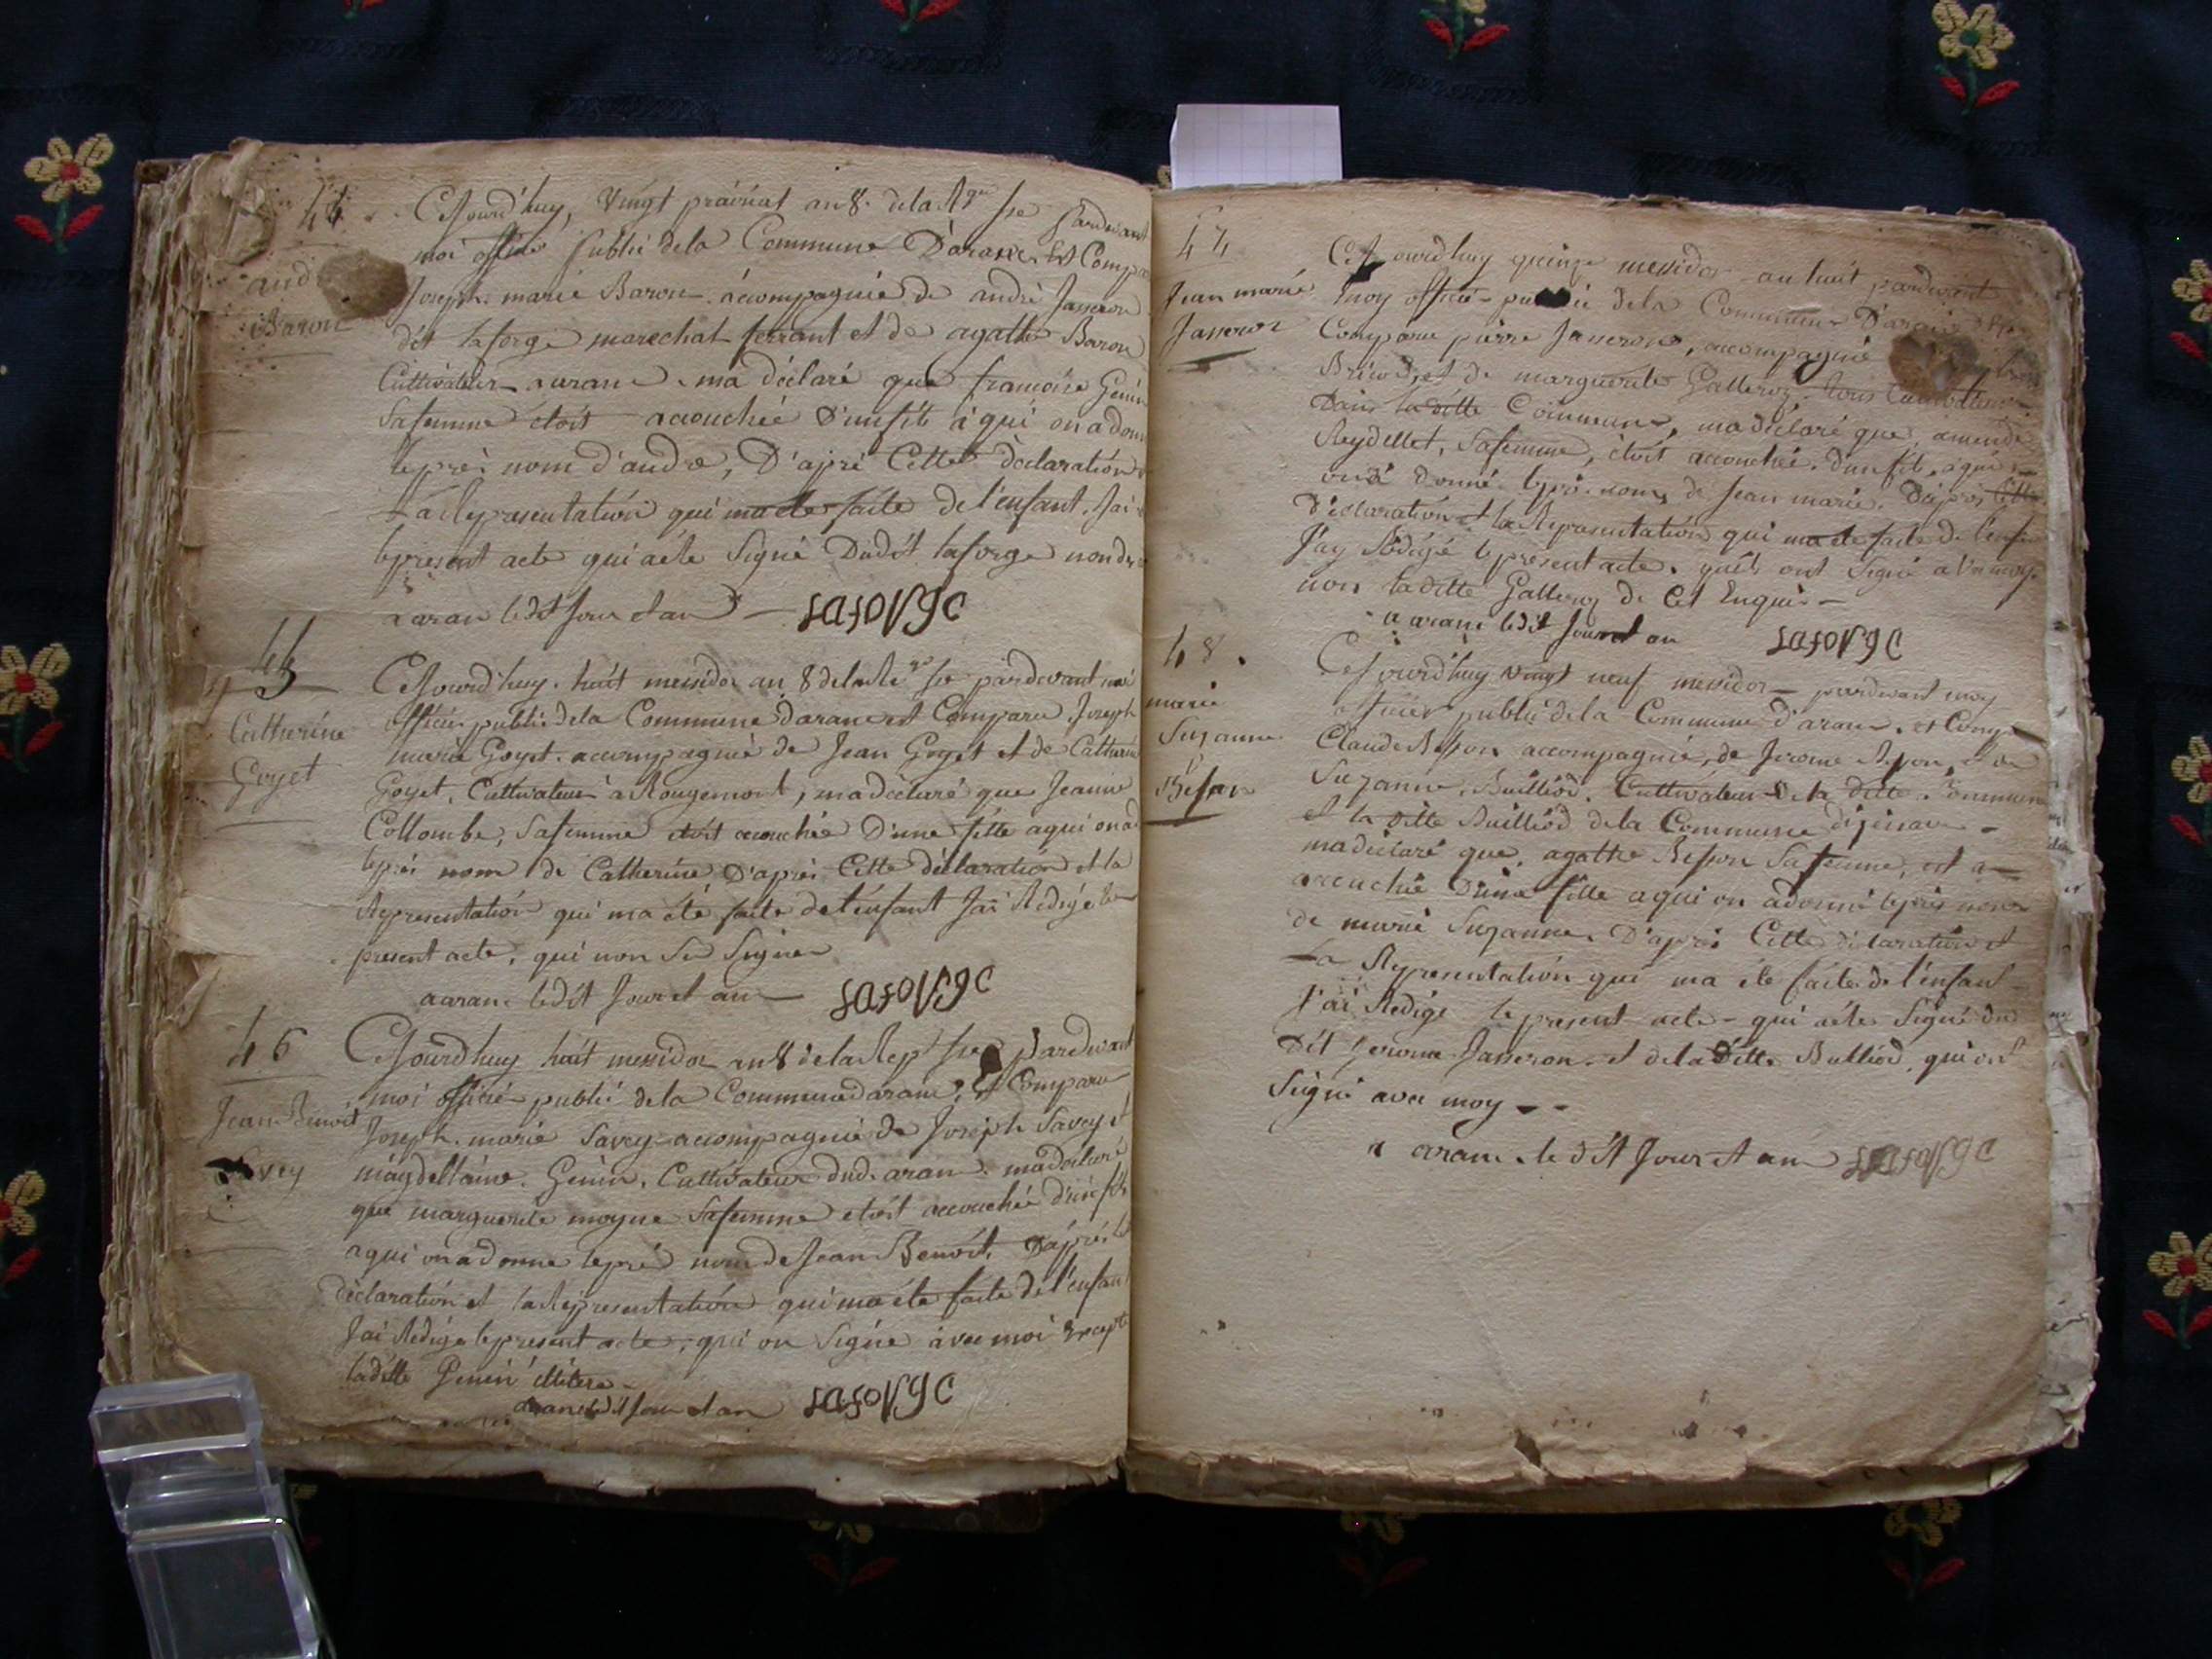 44
andr
Baron
Cejourd'huy, vingt prairiat an 8. de la Rque fse pardevant
moi officié publié de la Commune D'arane Est Compa
Joseph. marie Baron accompagnié de andré Janneron
dit laforge marechal ferrant et de agathe Baron
Cultivateur arane. ma déclaré que francoise Genin
Safemme étoit accouchée D'unfils à qui on a donn
lepré nom d'andre, D'apré Cette déclaration
la Representation qui ma ete faite de l'enfant. Jai
lepresent acte qui aéte Signé Dudit laforge non de
aaran ledit Jour et an
45
Catherine
Goyet
Cejourd'huy. huit messidor an 8 dela Rque fse pardevant moi
officié publié dela Commune darane est Comparu Joseph
marie Goyet. accompagnié de Jean Goyet et de Catherine
Goyet, Cultivateur à Rougemont, ma déclaré que Jeanne
Collombe, Safemme étoit accouchée D'une fille aqui ona
lepré nom de Catherine D'apré Cette déclaration et la
Representation qui ma été faite del'enfant Jai Rédigé le
present acte, qui non Su Signer
aaran. ledit Jour et an
46
Jean Benoit
Savey
Cejourdhuy huit messidor an 8 de la Rep fse pardevant
moi officié publié dela Commune darane, Est Comparu
Joseph. marie Savey accompagnié de Joseph Savey et
magdellaine. Genin. Cultivateur dud. aran. madéclaré
que marguerite moyne Safemme etoit accouchée d'un fils
aqui on adonne lepré nom de Jean Benoit. D'après la
déclaration et la Representation quima éte faite de l'enfant
Jai Redigé lepresent acte, qui on Signé avec moi Excepté
ladite Genin illitere
aran ledit Jour et an
47
Jean marie
Janneron
Cejourdhuy quinze messidor an huit pardevant
moy officié publié dela Commune D'arane Est
Comparu pierre Janneron, accompagnié
et de marguerite Galleroz. tous Cultivateur
dans laditte Commune, madéclaré que, amende
Reydellet, Safemme, étoit accouchée. dun fils, aqui
on à donné lepré. nom de Jean marie. D'apres Cette
Déclaration et la Representation qui ma éte faite de l'enfan
J'ay Rédigé lepresent acte. quils ont Signé avec moy
non laditte Galleroz de Cet Enquis
a arane ledit Jour et an
48.
marie
Suzanne
Besson
Cejourd'huy vingt neuf messidor pardevant moy
officier publié dela Commune d'arane. est Comp
Claude Besson accompagnié, de Jerome Besson, et de
Suzanne. Buillod. Cultivateur de la ditte. Commune
et la ditte Buillod dela Commune
madéclaré que. agathe Besson Safemme, est a
accouchée D'une fille aqui on adonné lepré nom
de marie Suzanne. D'apré Cette déclaration et
La Representation qui ma éte faite de l'enfant
J'ai Redigé le present acte qui aéte Signé du
dit Jerome Janneron. et dela Ditte Buillod, qui ont
Signé avec moy
a arane. le dit Jour et an